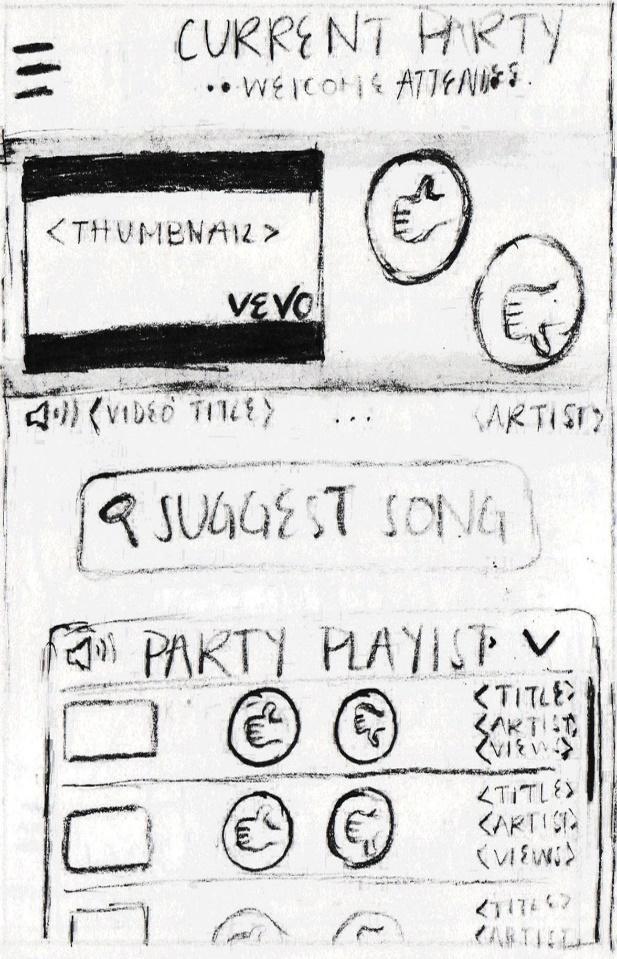 CURRENT PARTY
WELCOME ATTENDEE
<THUMBNAIL>
VEVO
<VIDEO TITLE> ... <ARTIST>
SUGGEST SONG
PARTY PLAYIST
<TITLE>
<ARTIST>
<VIEWS>
<TITLE>
<ARTIST>
<VIEWS>
<TITLE>
<ARTIST